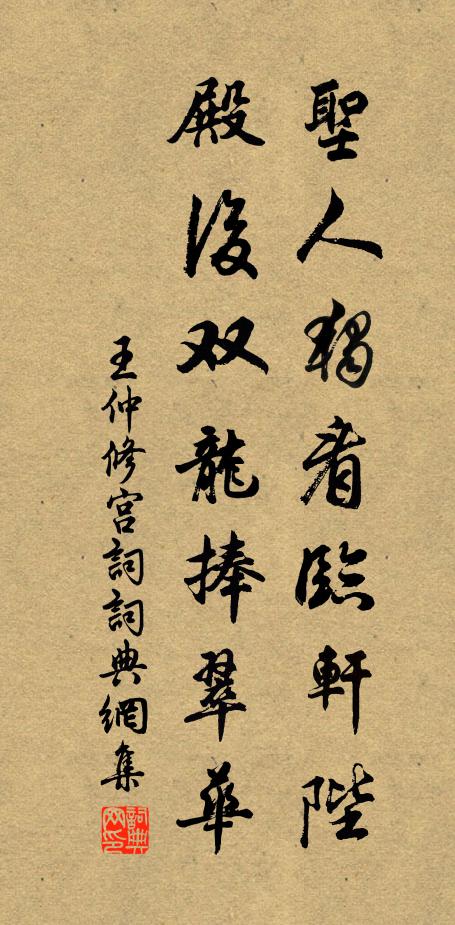 聖人獨看臨軒陛
殿後双龍捧翠華
王仲修宮詞詞典網集
詞典网印